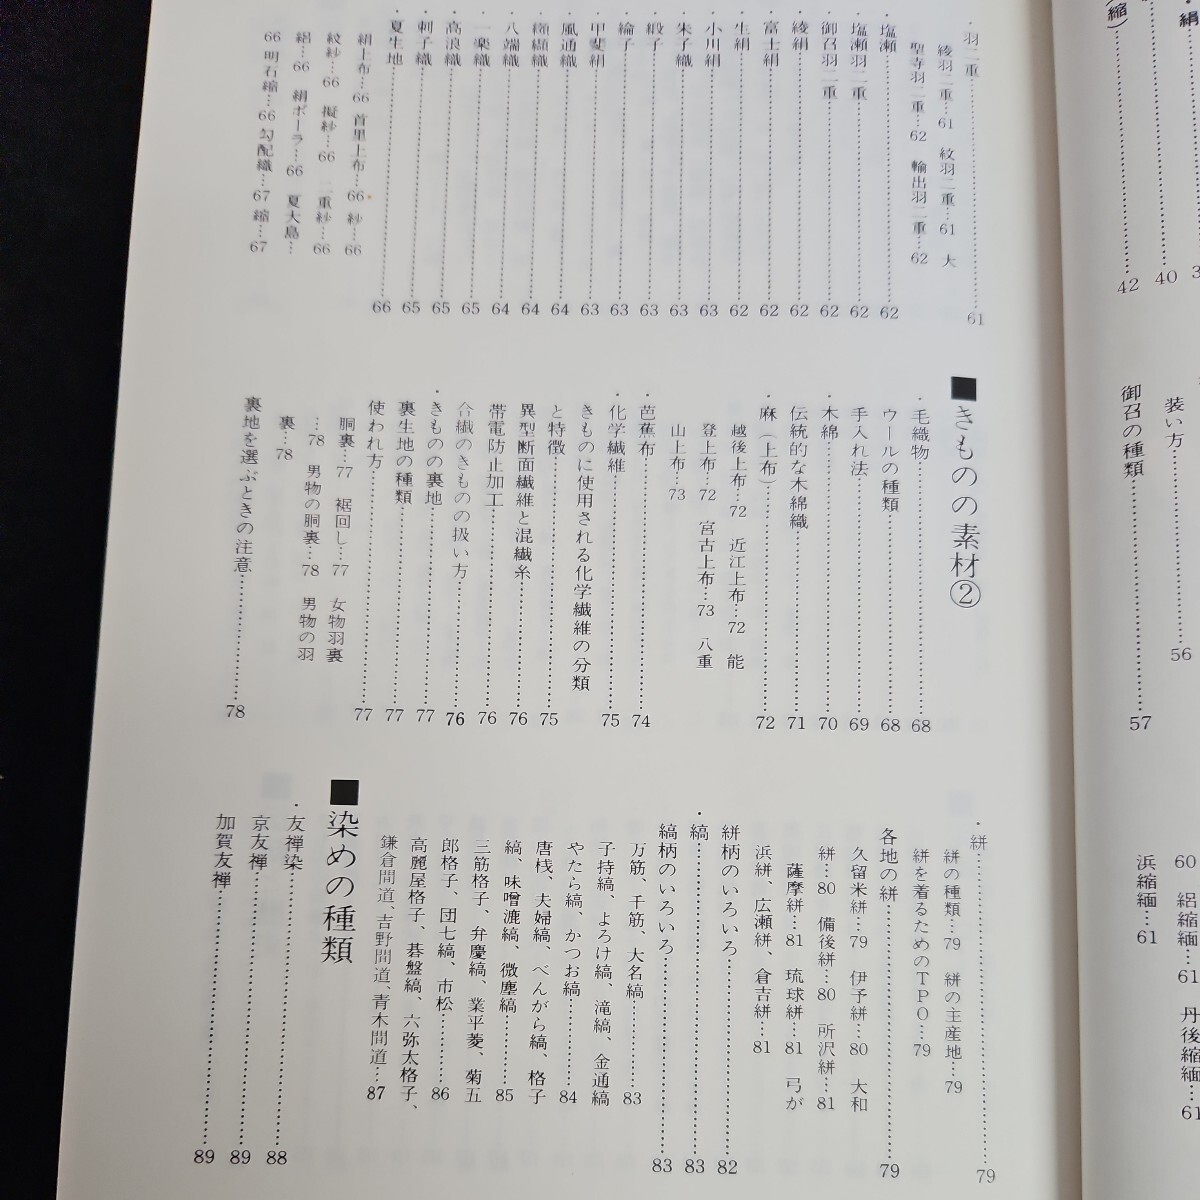 絹
（縮）
40
42
装い方
56
御召の種類
57
60 絽縮緬…61 丹後縮緬…61
浜縮緬…61
・羽二重
61
綾羽二重…61 紋羽二重…61 大
聖寺羽二重…62 輸出羽二重…62
塩瀬 62
塩瀬羽二重 62
御召羽二重 62
綾絹 62
富士絹 62
生絹 62
小川絹 63
朱子織 63
緞子 63
綸子 63
甲斐絹 63
風通織 64
纐纈織 64
八端織 64
一楽織 65
高浪織 65
刺子織 65
・夏生地 66
絹上布…66 首里上布…66 紗…66
紋紗…66 擬紗…66 二重紗…66
絽…66 絹ポーラ…66 夏大島…
66 明石縮…66 勾配織…67 縮…67
■きものの素材②
・毛織物 68
ウールの種類 68
手入れ法 69
・木綿 70
伝統的な木綿織 71
・麻（上布） 72
越後上布…72 近江上布…72 能
登上布…72 宮古上布…73 八重
山上布…73
・芭蕉布 74
・化学繊維 75
きものに使用される化学繊維の分類
と特徴 75
異型断面繊維と混繊糸 76
帯電防止加工 76
合繊のきものの扱い方 76
・きものの裏地 77
裏生地の種類 77
使われ方 77
胴裏…77 裾回し…77 女物羽裏
…78 男物の胴裏…78 男物の羽
裏…78
裏地を選ぶときの注意 78
・絣 79
絣の種類…79 絣の主産地…79
絣を着るためのTPO…79
各地の絣 79
久留米絣…79 伊予絣…80 大和
絣…80 備後絣…80 所沢絣…81
薩摩絣…81 琉球絣…81 弓が
浜絣、広瀬絣、倉吉絣…81
絣柄のいろいろ 82
・縞 83
縞柄のいろいろ 83
万筋、千筋、大名縞 83
子持縞、よろけ縞、滝縞、金通縞
やたら縞、かつお縞 84
唐桟、夫婦縞、べんがら縞、格子
縞、味噌漉縞、微塵縞 85
三筋格子、弁慶縞、業平菱、菊五
郎格子、団七縞、市松 86
高麗屋格子、碁盤縞、六弥太格子、
鎌倉間道、吉野間道、青木間道…87
■染めの種類
・友禅染 88
京友禅 89
加賀友禅 89